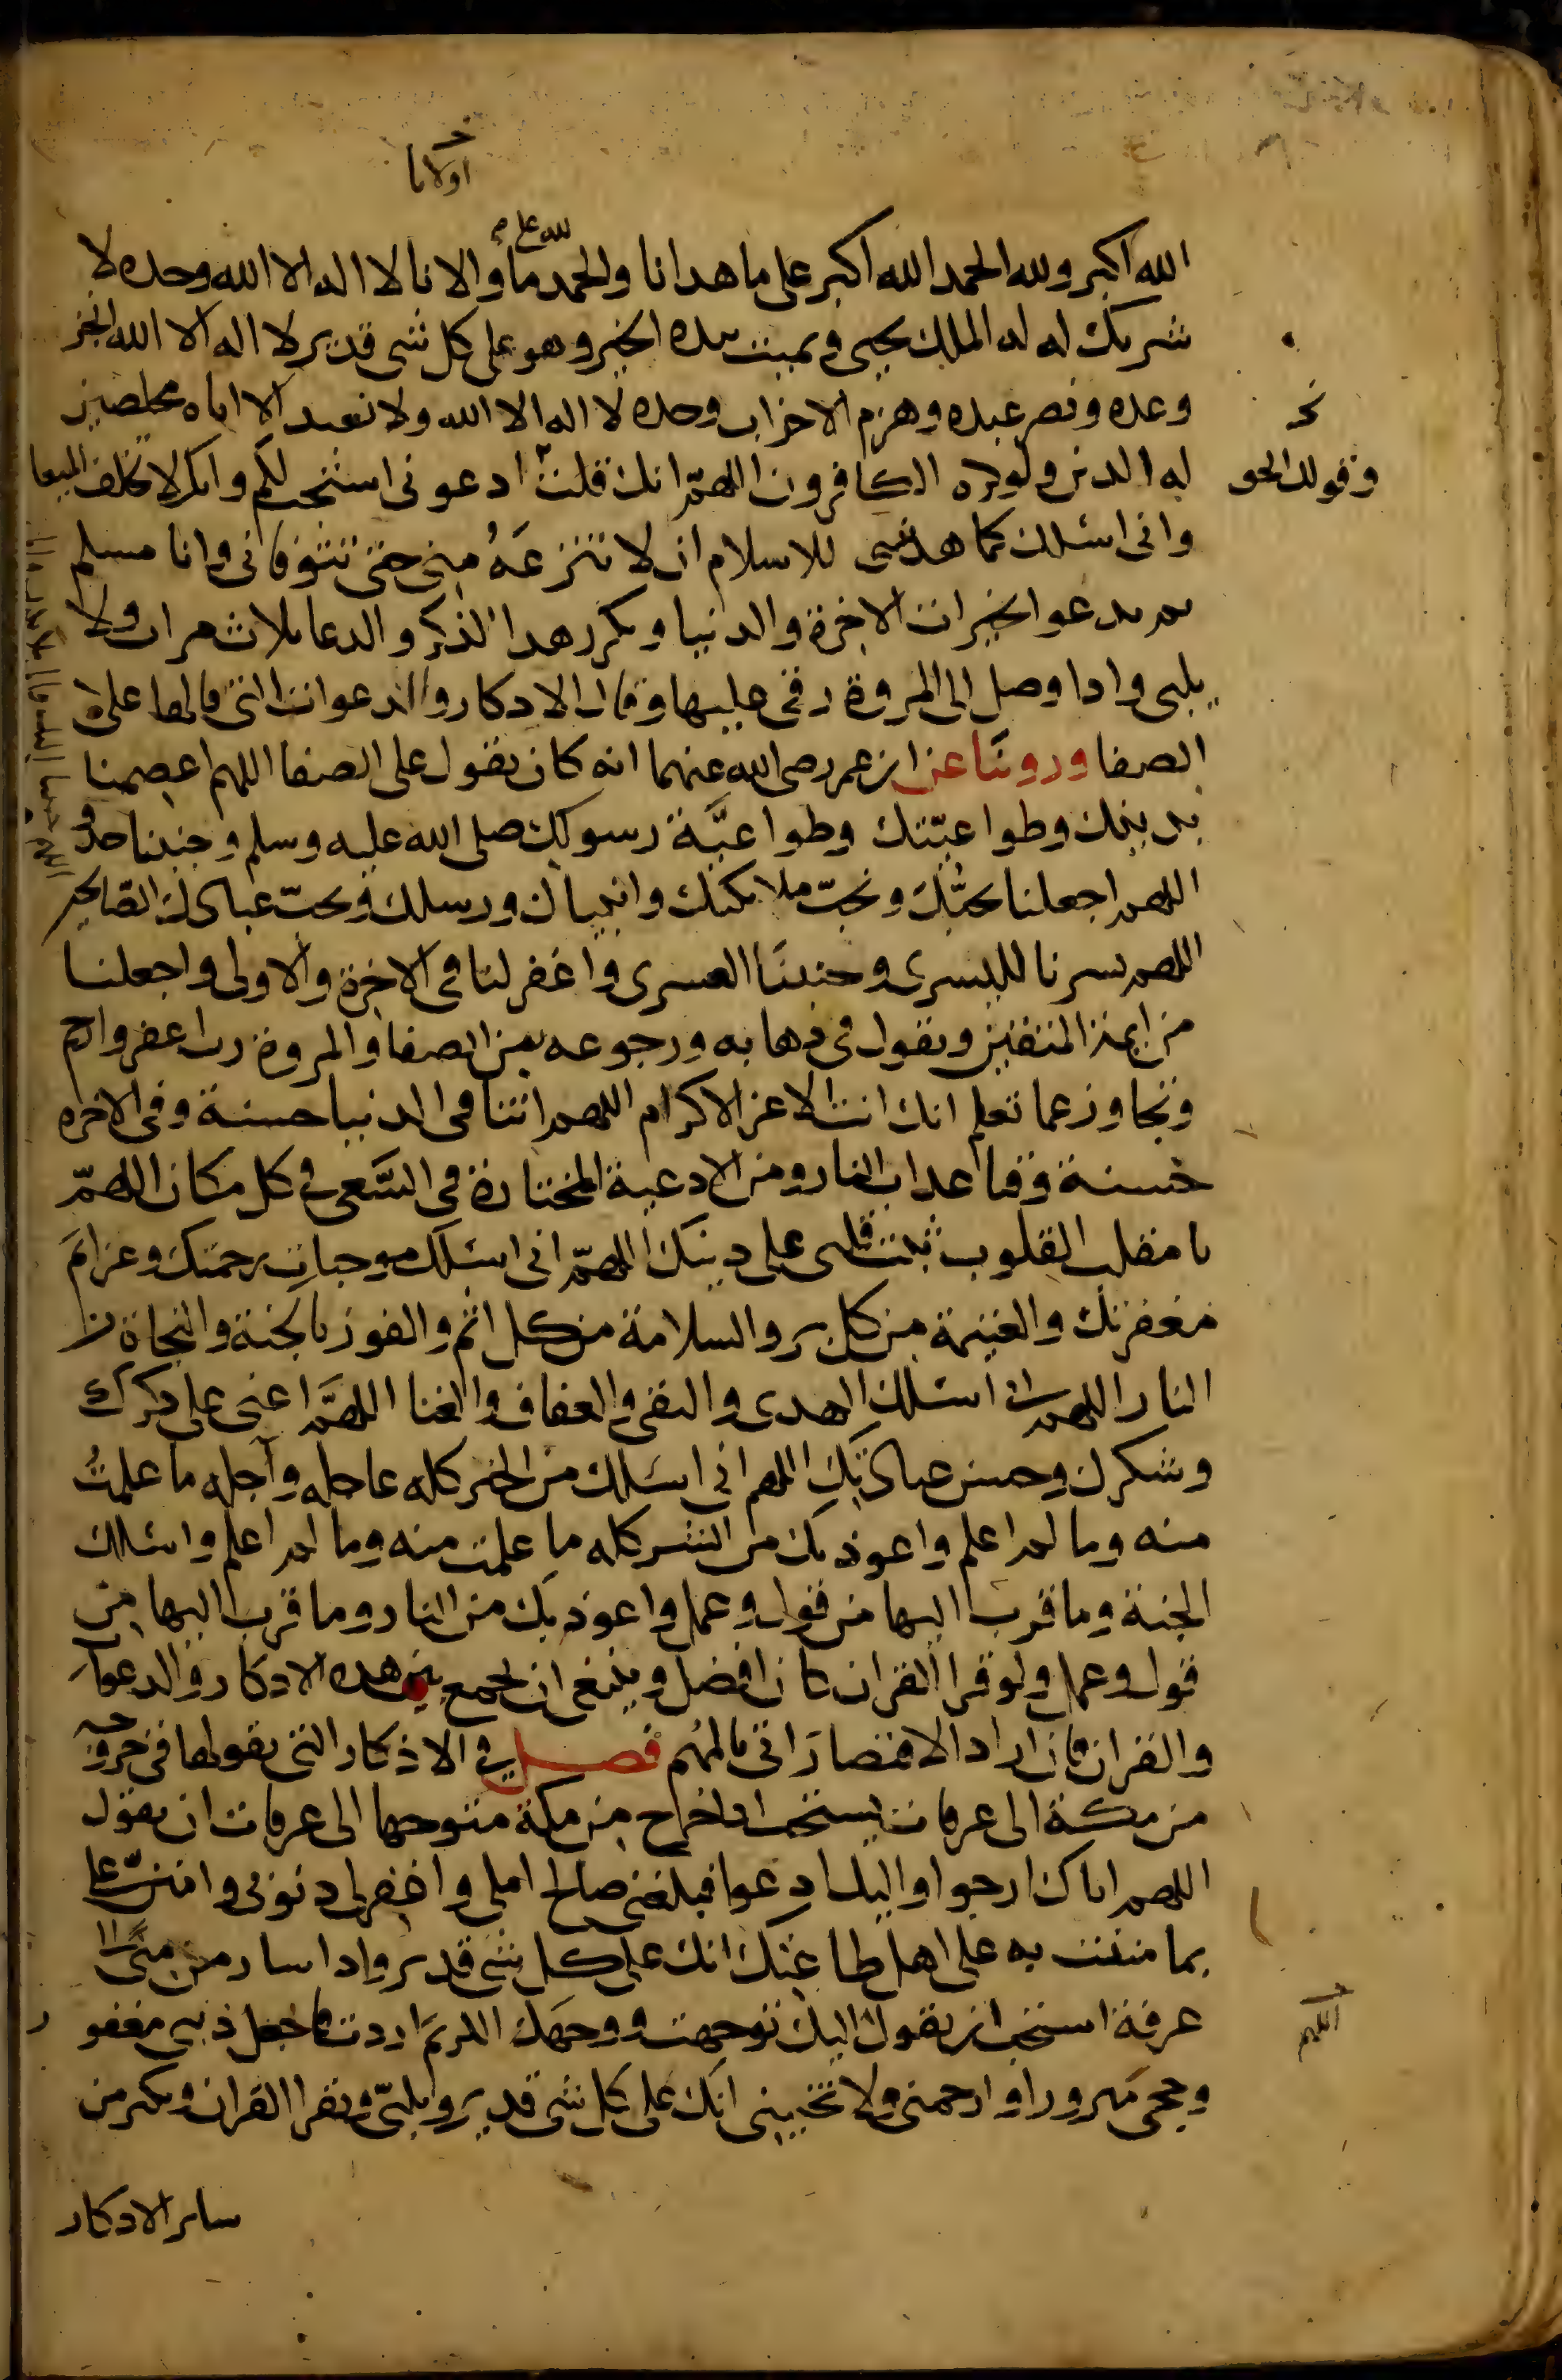 اولانا
الله اكبر ولله الحمد الله اكبر على ما هدانا والحمد لله على ما اولانا لا اله الا الله وحده لا
شريك له له الملك يحيي ويميت بيده الخير وهو على كل شى قدير لا اله الا الله انجز
وعده ونصر عبده وهزم الاحزاب وحده لا اله الا الله ولا نعبد الا اياه مخلصين
له الدين ولو كره الكافرون اللهمّ انك قلت ادعونى استجب لكم وانك لا تخلف الميعا
وقولك الحق
وانى اسئلك كما هديتنى للاسلام ان لا تنزعَهُ مِنى حتى تتوفانى وانا مسلم
ثم يدعوا بخيرات الاخرة والدنيا ويكرر هذا الذكر والدعا ثلاث مرات ولا
يلبى واذا وصل الى المروة رقى عليها وقال الاذكار والدعوات التى قالها على
الصفا وروينا عن ابن عمر رضى الله عنهما انه كان يقول على الصفا اللهم اعصمنا
بدينك وطواعيّتك وطواعيَّة رسولك صلى الله عليه وسلم وجنبنا حدو
اللهم اجعلنا نحبُّك ونحبّ ملائكتك وانبياك ورسلك ونحبّ عبادك الصّالحين
اللهم يسرنا لليسرى وجنبنَا العسرى واغفر لنا فى الاخرة والاولى واجعلنا
من ايمة المتقين ويقول فى ذهابه ورجوعه بين الصفا والمروة رب اغفر وارحم
وتجاوز عما تعلم انك انت الاعز الاكرم اللهم اتنا فى الدنيا حسنة وفى الاخره
حسنة وقنا عذاب النار ومن الادعية المختارة فى السَّعى فى كل مكان اللهمّ
يا مقلب القلوب ثبت قلبى على دينك اللهمّ انى اسئلك موجباتِ رحمتك وعزائمَ
مغفرتك والغنيمة من كل بر والسلامة من كل اثم والفوز بالجنة والنجاة من
النار اللهم انى اسئلك الهدى والتقى والعفاف والغنا اللهمَّ اعنى على ذكرك
وشكرك وحسن عبادتك اللهم انى اسئلك من الخير كله عاجله وآجله ما علمتُ
منه وما لم اعلم واعوذ بك من الشر كله ما علمت منه وما لم اعلم واسئلك
الجنة وما قرب اليها من قول وعمل واعوذ بك من النار وما قرب اليها من
قول وعمل ولو قرا القران كان افضل وينبغى ان يجمع بين هذه الاذكار والدعوات
والقران فان اراد الاقتصارَ اتى بالمُهم فصل فى الاذكار التى يقولها فى خروجه
من مكة الى عرفات يستحب اذا خرج من مكة متوجها الى عرفات ان يقول
اللهم اياك ارجوا واليك ادعوا فبلغنى صالح املى واغفر لى ذنوبى وامننّ على
بما مننت به على اهل طاعتك انك على كل شى قدير واذا سار من منًى الى
عرفة استحب ان يقول اليك توجهت ووجهك الكريمَ اردت فاجعل ذنبى مغفور
اللهم
وحجى مبرورا وارحمنى ولا تخيبنى انك على كل شى قدير ويلبّى ويقرا القران ويكثر من
ساير الاذكار